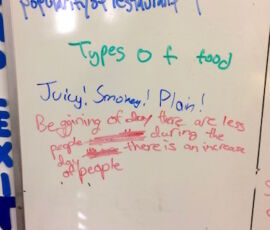 popularity of restaurant
Types of food
Juicy! Smokey! Plain!
Beggining of day there are less
people during the
day there is an increase
of people
EXIT